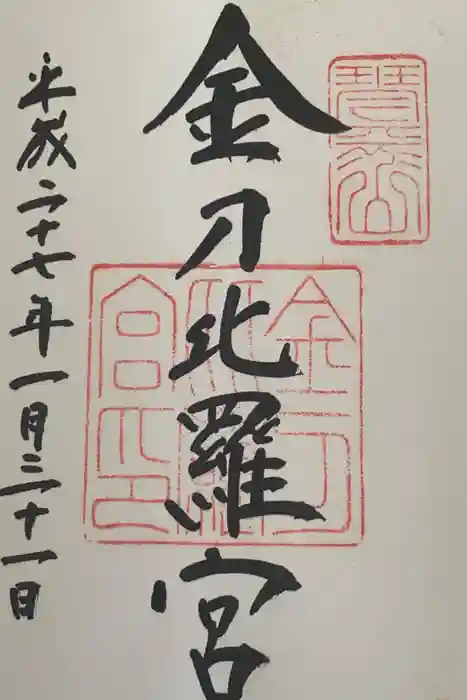 琴平山
金刀比羅宮
金刀
比羅
宮印
平成二十七年一月三十一日